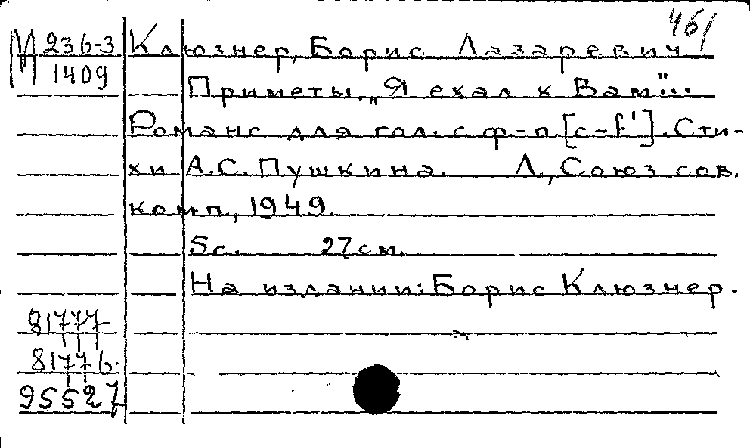 461
М 236-3 Клюзнер, Борис Лазаревич
1409
Приметы. „Я ехал к Вам"...
Романс для гол. с ф-п [c-f']. Сти-
хи А.С. Пушкина. Л., Союз сов.
комп., 1949.
5с. 27см.
На издании: Борис Клюзнер.
81777
81776
95527